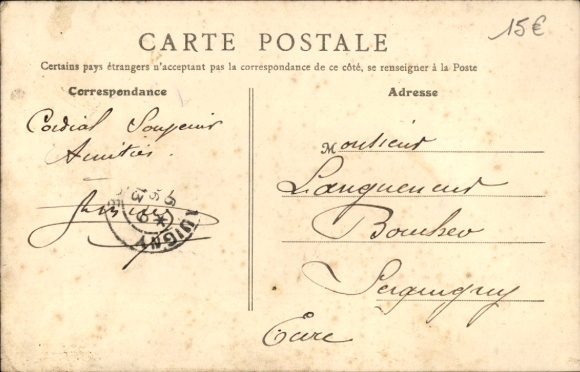 15€
CARTE POSTALE
Certains pays étrangers n'acceptent pas la correspondance de ce côté, se renseigner à la Poste
Correspondance
Adresse
Cordial Souvenir
Amitiés.
Monsieur
Langueneur
Boucher
Serquigny
Eure